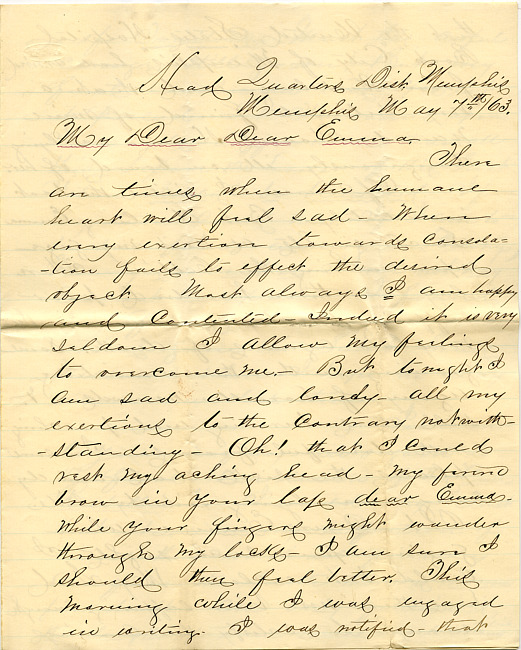 Head Quarters Dist Memphis
Memphis May 7th/63.
My Dear Dear Emma
There
are times when the humane
heart will feel sad - When
every exertion towards consola=
-tion fails to effect the desired
object Most always I am happy
and Contented - Indeed it is very
seldom I allow my feelings
to overcome me. - But tonight I
am sad and lonely - all my
exertions to the Contrary notwith-
-standing - Oh! that I could
rest my aching head - my
brow in your lap dear Emma -
while your fingers might wander
through my locks - I am sure I
should then feel better. This
morning while I was engaged
in writing - I was notified - that